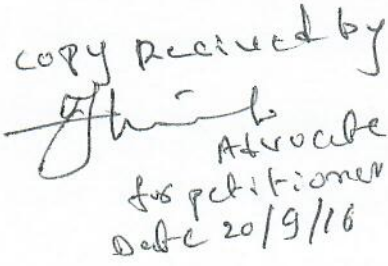 copy Recived by
Advocate
for petitioner
Date 20/9/16